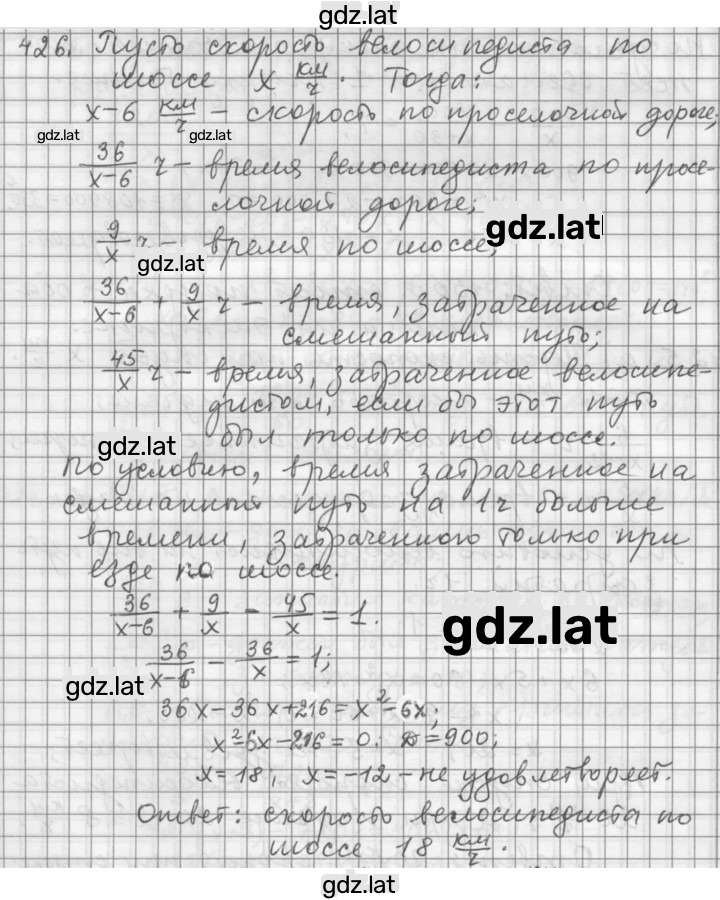 gdz.lat
426. Пусть скорость велосипедиста по
шоссе x км/ч. Тогда:
x-6 км/ч - скорость по проселочной дороге;
gdz.lat gdz.lat
36/(x-6) ч - время велосипедиста по просе-
лочной дороге;
gdz.lat
9/x ч - время по шоссе;
gdz.lat
36/(x-6) + 9/x ч - время, затраченное на
смешанный путь;
45/x ч - время, затраченное велосипе-
дистом, если бы этот путь
был только по шоссе.
gdz.lat
По условию, время затраченное на
смешанный путь на 1ч больше
времени, затраченного только при
езде по шоссе.
36/(x-6) + 9/x - 45/x = 1.
gdz.lat
36/(x-6) - 36/x = 1;
gdz.lat
36x-36x+216=x²-6x;
x²-6x-216=0. D=900;
x=18, x=-12 - не удовлетворяет.
Ответ: скорость велосипедиста по
шоссе 18 км/ч.
gdz.lat